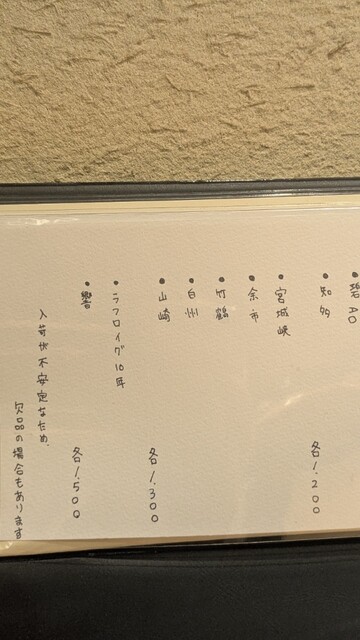 碧AO
・知多
各1,200
・宮城峡
・余市
・竹鶴
・白州
・山崎
各1,300
・ラフロイグ10年
・響
各1,500
入荷が不安定なため、
欠品の場合もあります